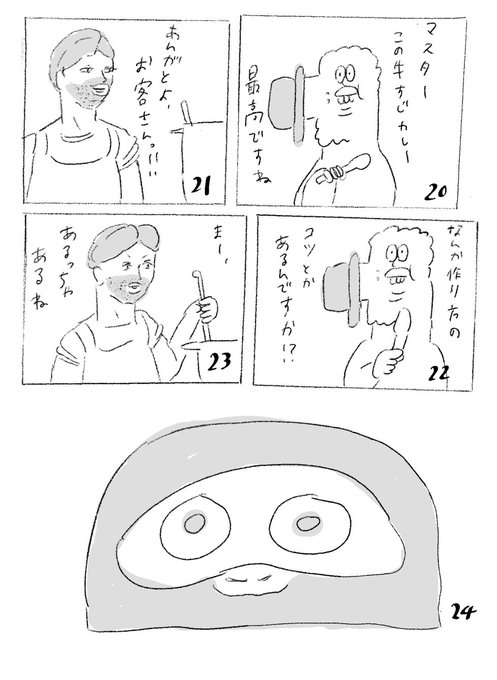 マスター
この牛すじカレー
最高ですね
20
あんがとよ、
お客さんっ!!!
21
なんか作り方の
コツとか
あるんですか!?!
22
まー、
あるっちゃ
あるね
23
24